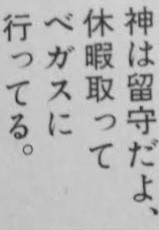 神は留守だよ、
休暇取って
ベガスに
行ってる。